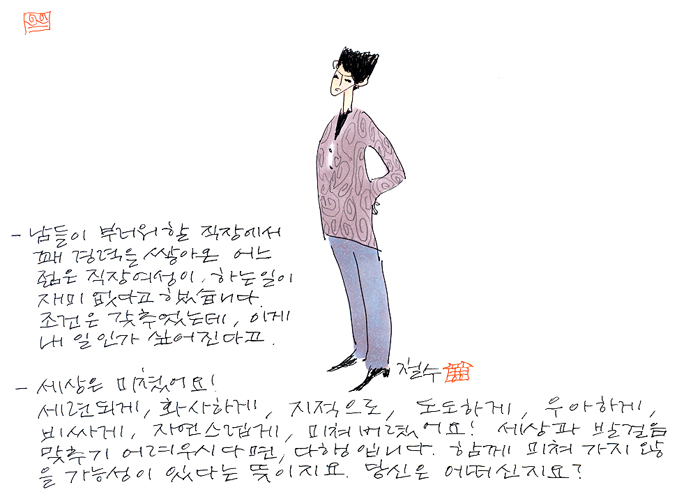 - 남들이 부러워할 직장에서
꽤 경력을 쌓아온 어느
젊은 직장여성이, 하는일이
재미 없다고 했습니다.
조건은 갖추었는데, 이게
내 일인가 싶어진다고.
철수
- 세상은 미쳤어요!
세련되게, 화사하게, 지적으로, 도도하게, 우아하게,
비싸게, 자연스럽게, 미쳐버렸어요! 세상과 발걸음
맞추기 어려우시다면, 다행입니다. 함께 미쳐 가지 않
을 가능성이 있다는 뜻이지요. 당신은 어떠신지요?